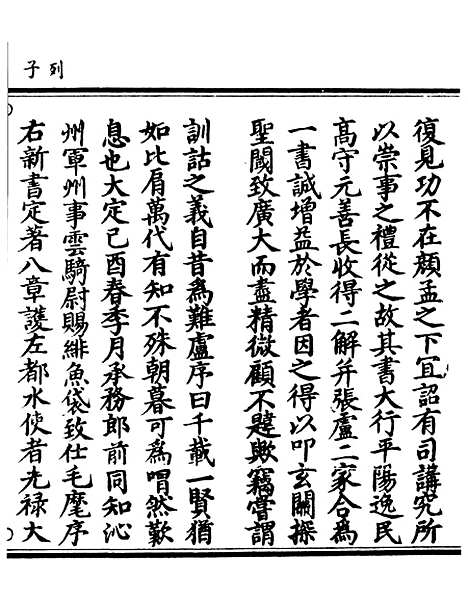 列子
復見功不在顏孟之下宜詔有司講究所
以崇事之禮從之故其書大行平陽逸民
髙守元善長收得二解并張盧二家合為
一書誠增益於學者因之得以叩玄關探
聖閫致廣大而盡精微顧不韙歟竊嘗謂
訓詁之義自昔為難盧序曰千載一賢猶
如比肩萬代有知不殊朝暮可為喟然歎
息也大定己酉春季月承務郎前同知沁
州軍州事雲騎尉賜緋魚袋致仕毛麾序
右新書定著八章護左都水使者光禄大